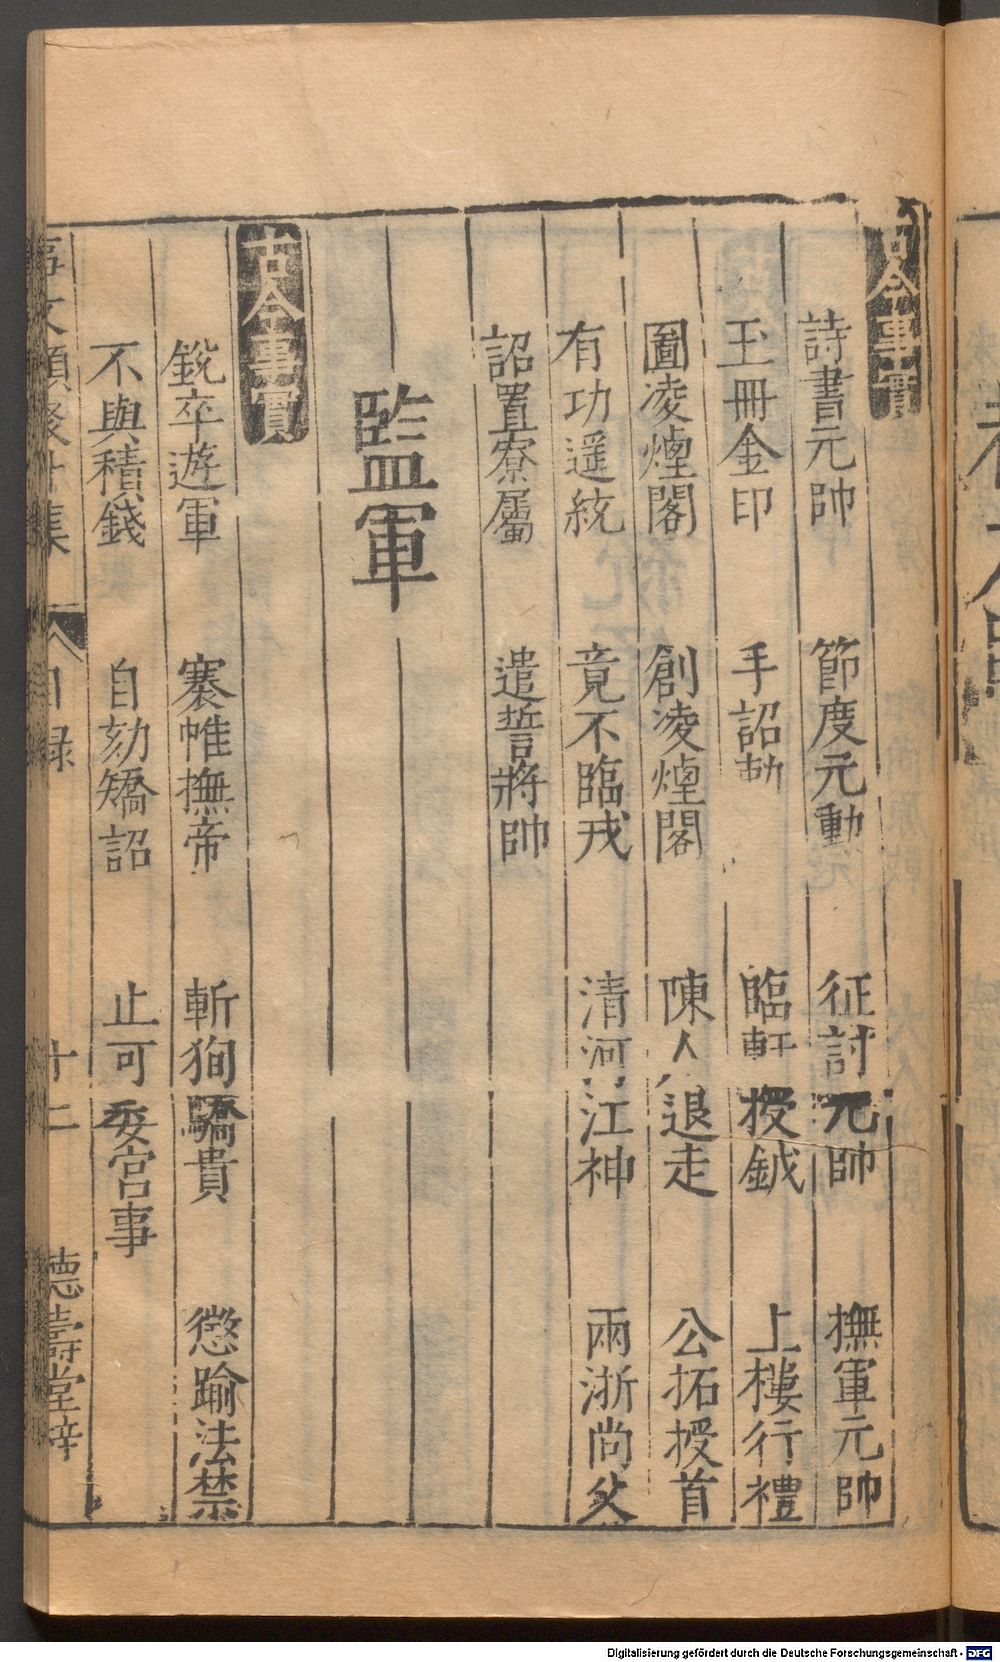 古今事實
詩書元帥 節度元勳 征討元帥 撫軍元帥
玉冊金印 手詔勅 臨軒授鉞 上樓行禮
圖凌煙閣 創凌煙閣 陳人退走 公拓授首
有功遥統 竟不臨戎 清河江神 兩浙尚父
詔置寮屬 遣誓將帥
監軍
古今事實
銳卒遊軍 褰帷撫帝 斬狥驕貴 懲踰法禁
不與積錢 自劾矯詔 止可委宫事
事文類聚外集 目録 十二 德壽堂梓
Digitalisierung gefördert durch die Deutsche Forschungsgemeinschaft - DFG